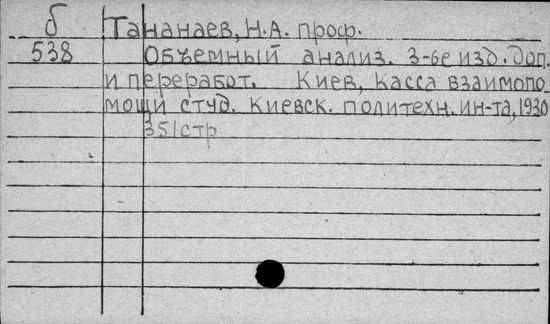 б Тананаев, Н.А. проф.
538 Объемный анализ. 3-ье изд. доп.
и переработ. Киев, Касса взаимопо
мощи студ. Киевск. политехн. ин-та, 1930
351 стр